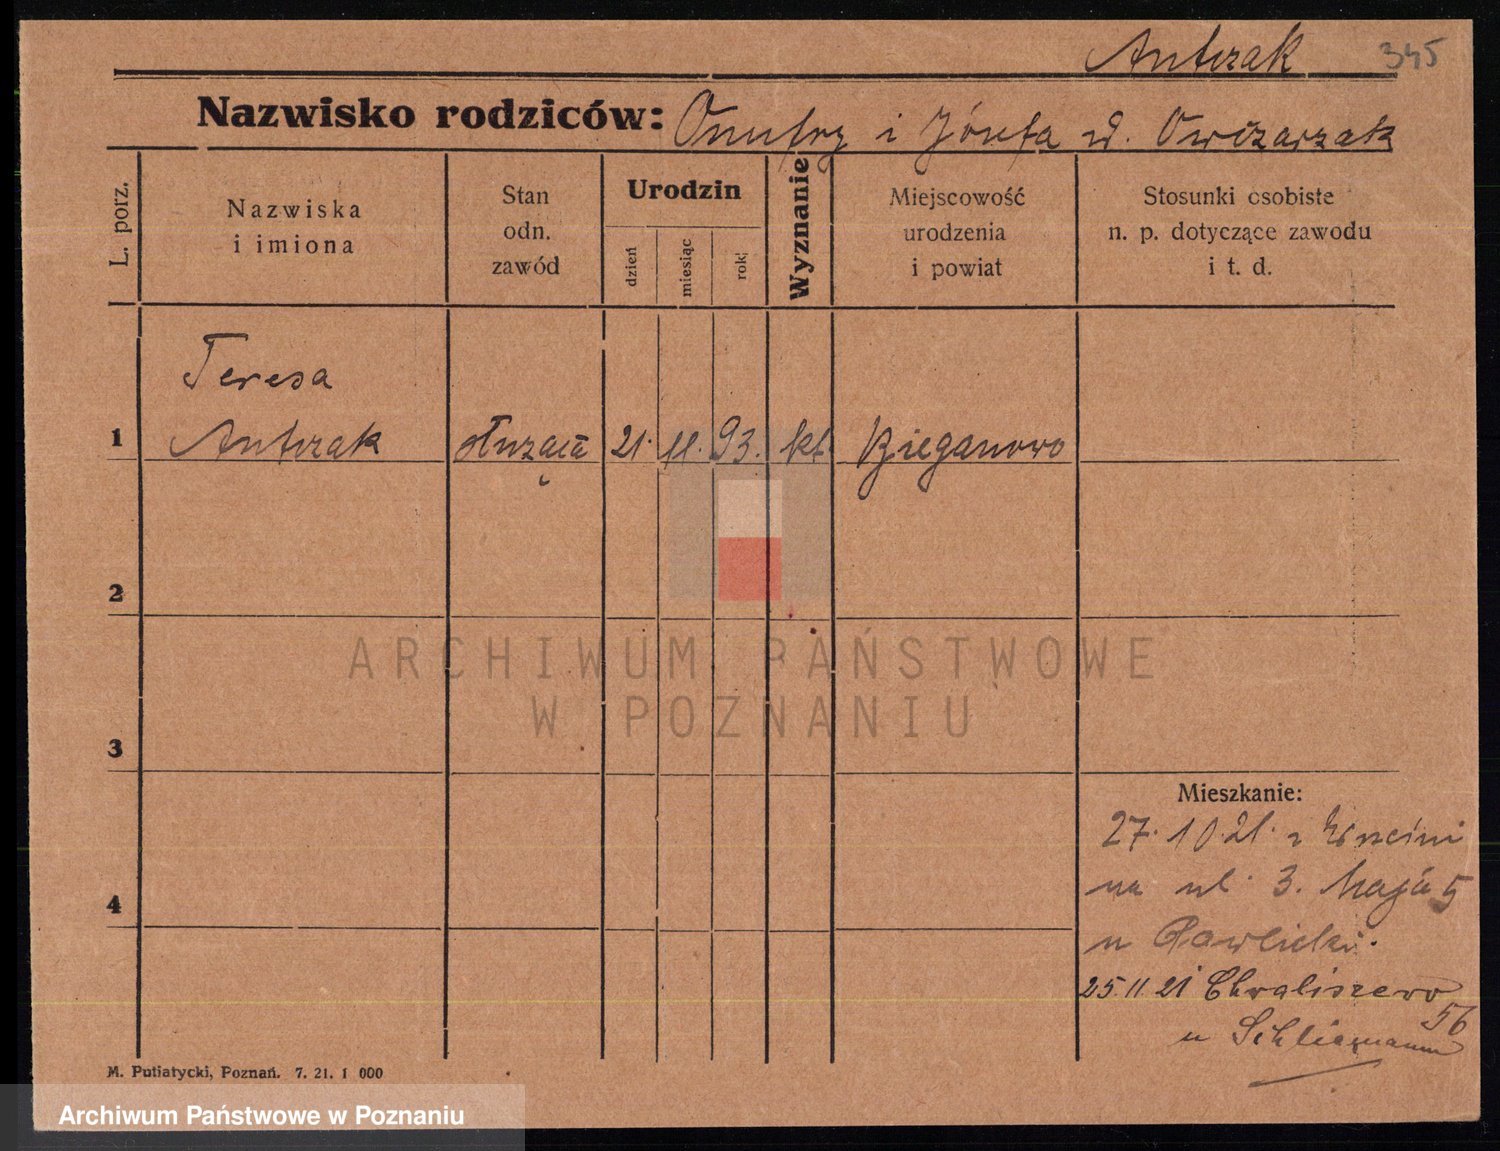 Antczak 345
Nazwisko rodziców: Onufry i Józefa d. Owczarzak
L. porz.
Nazwiska
i imiona
Stan
odn.
zawód
Urodzin
dzień
miesiąc
rok
Wyznanie
Miejscowość
urodzenia
i powiat
Stosunki osobiste
n. p. dotyczące zawodu
i t. d.
Teresa
1 Antczak służąca 21. 11. 93. kt. Bieganowo
2
ARCHIWUM PAŃSTWOWE
W POZNANIU
3
Mieszkanie:
27.10.21. z Wrześni
4 na ul. 3. Maja 5
u Pawlicki.
25.11.21 Chwaliszewo
56
u
M. Putiatycki, Poznań. 7. 21. 1 000
Archiwum Państwowe w Poznaniu